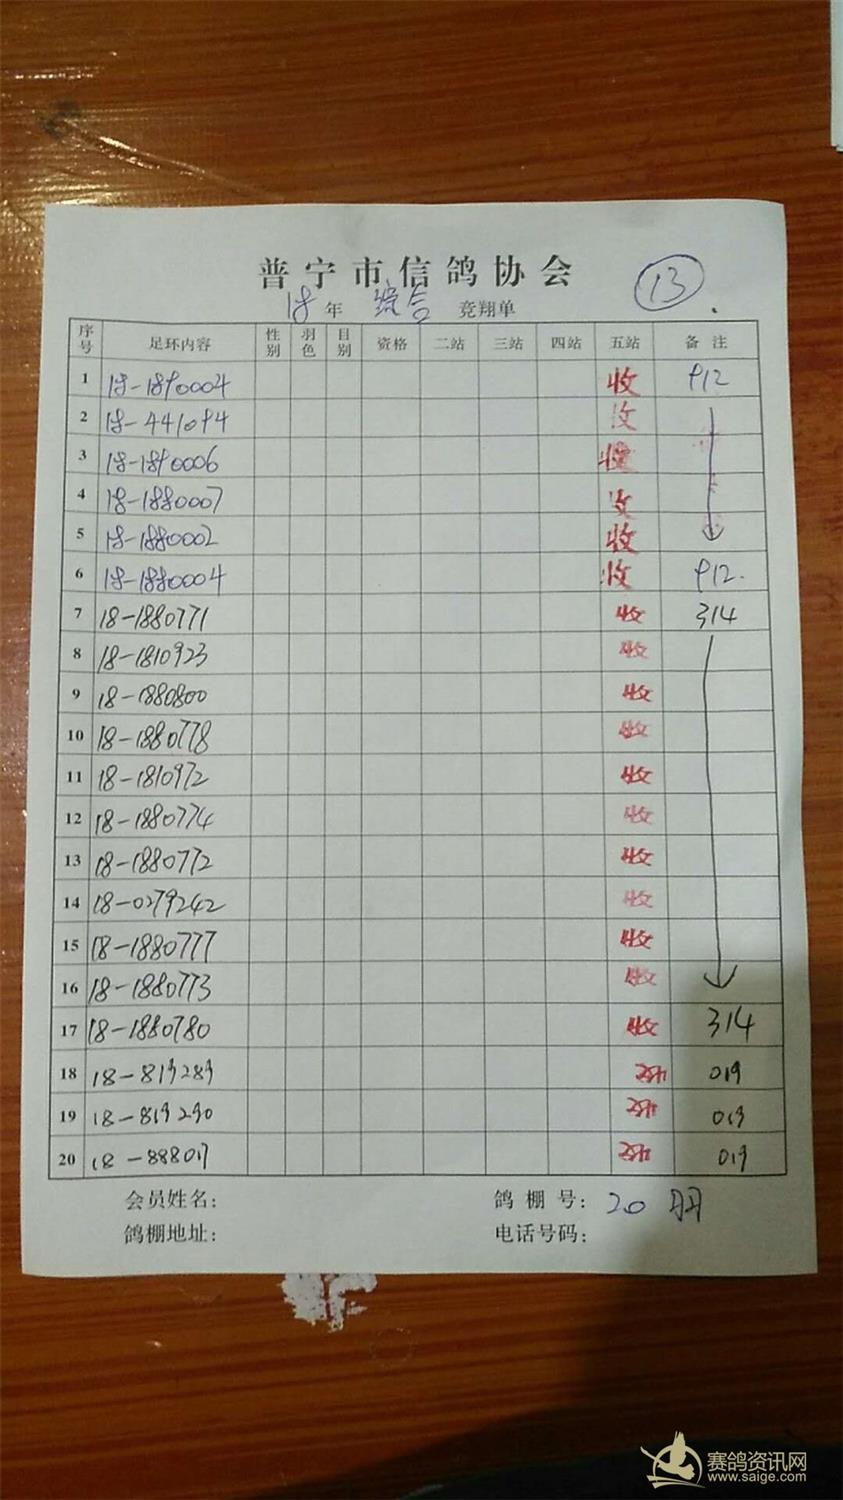 普宁市信鸽协会
⑬
18年 综合 竞翔单
序号 足环内容 性别 羽色 目别 资格 二站 三站 四站 五站 备注
1 18-1890004 收 912
2 18-441094 收
3 18-1890006 收
4 18-1880007 收
5 18-1880002 收
6 18-1880004 收 912.
7 18-1880771 收 314
8 18-1810923 收
9 18-1880800 收
10 18-1880778 收
11 18-1810972 收
12 18-1880774 收
13 18-1880772 收
14 18-0279242 收
15 18-1880777 收
16 18-1880773 收
17 18-1880780 收 314
18 18-819289 收 019
19 18-819290 收 019
20 18-888017 收 019
会员姓名: 鸽棚号: 20羽
鸽棚地址: 电话号码:
赛鸽资讯网
www.saige.com